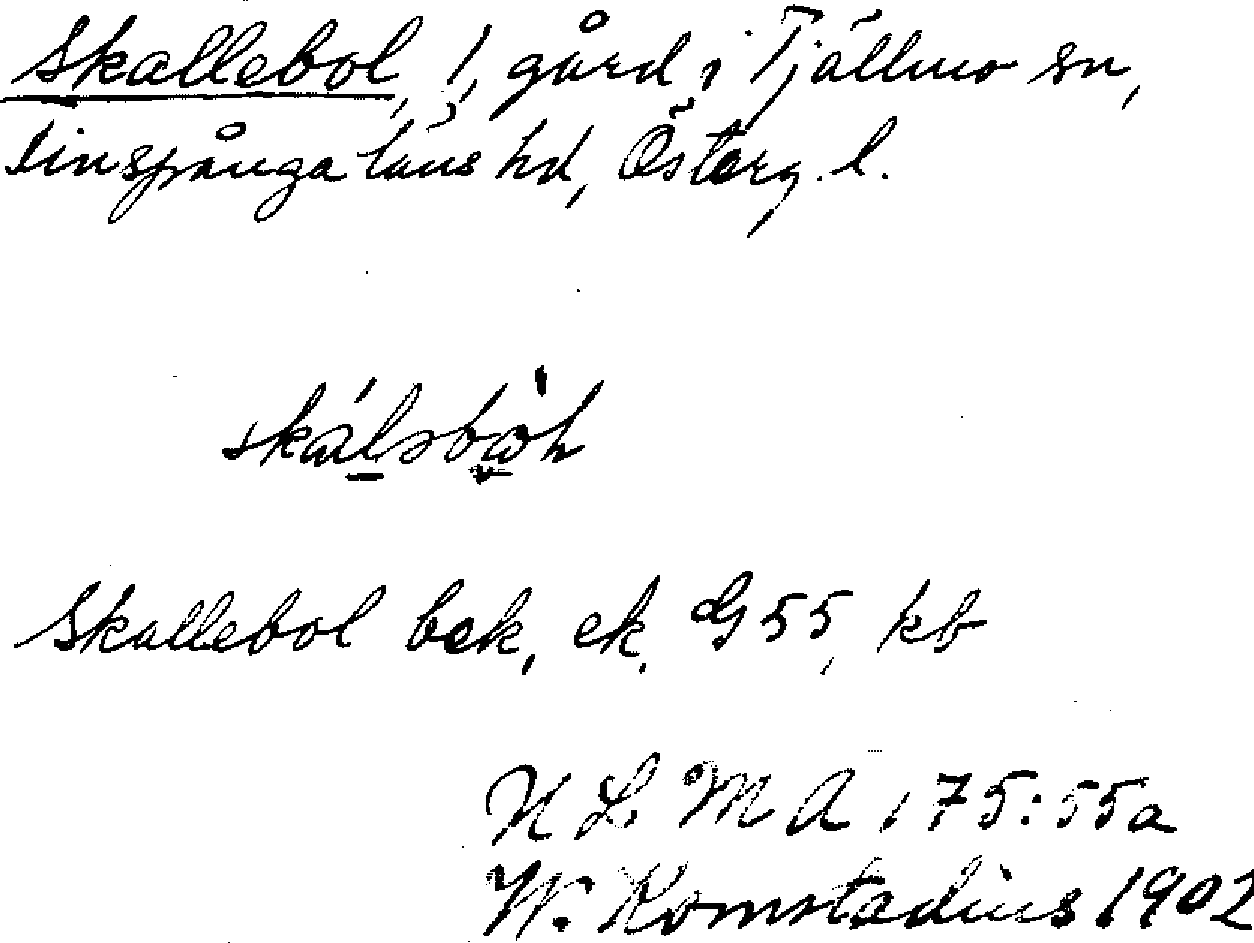 Skallebol, 1, gård i Tjällmo sn,
Finspånga läns hd, Österg. l.
Skallebol bek, ek, GS 55, kb
ULMA 175:55a
W. Komstadius 1902